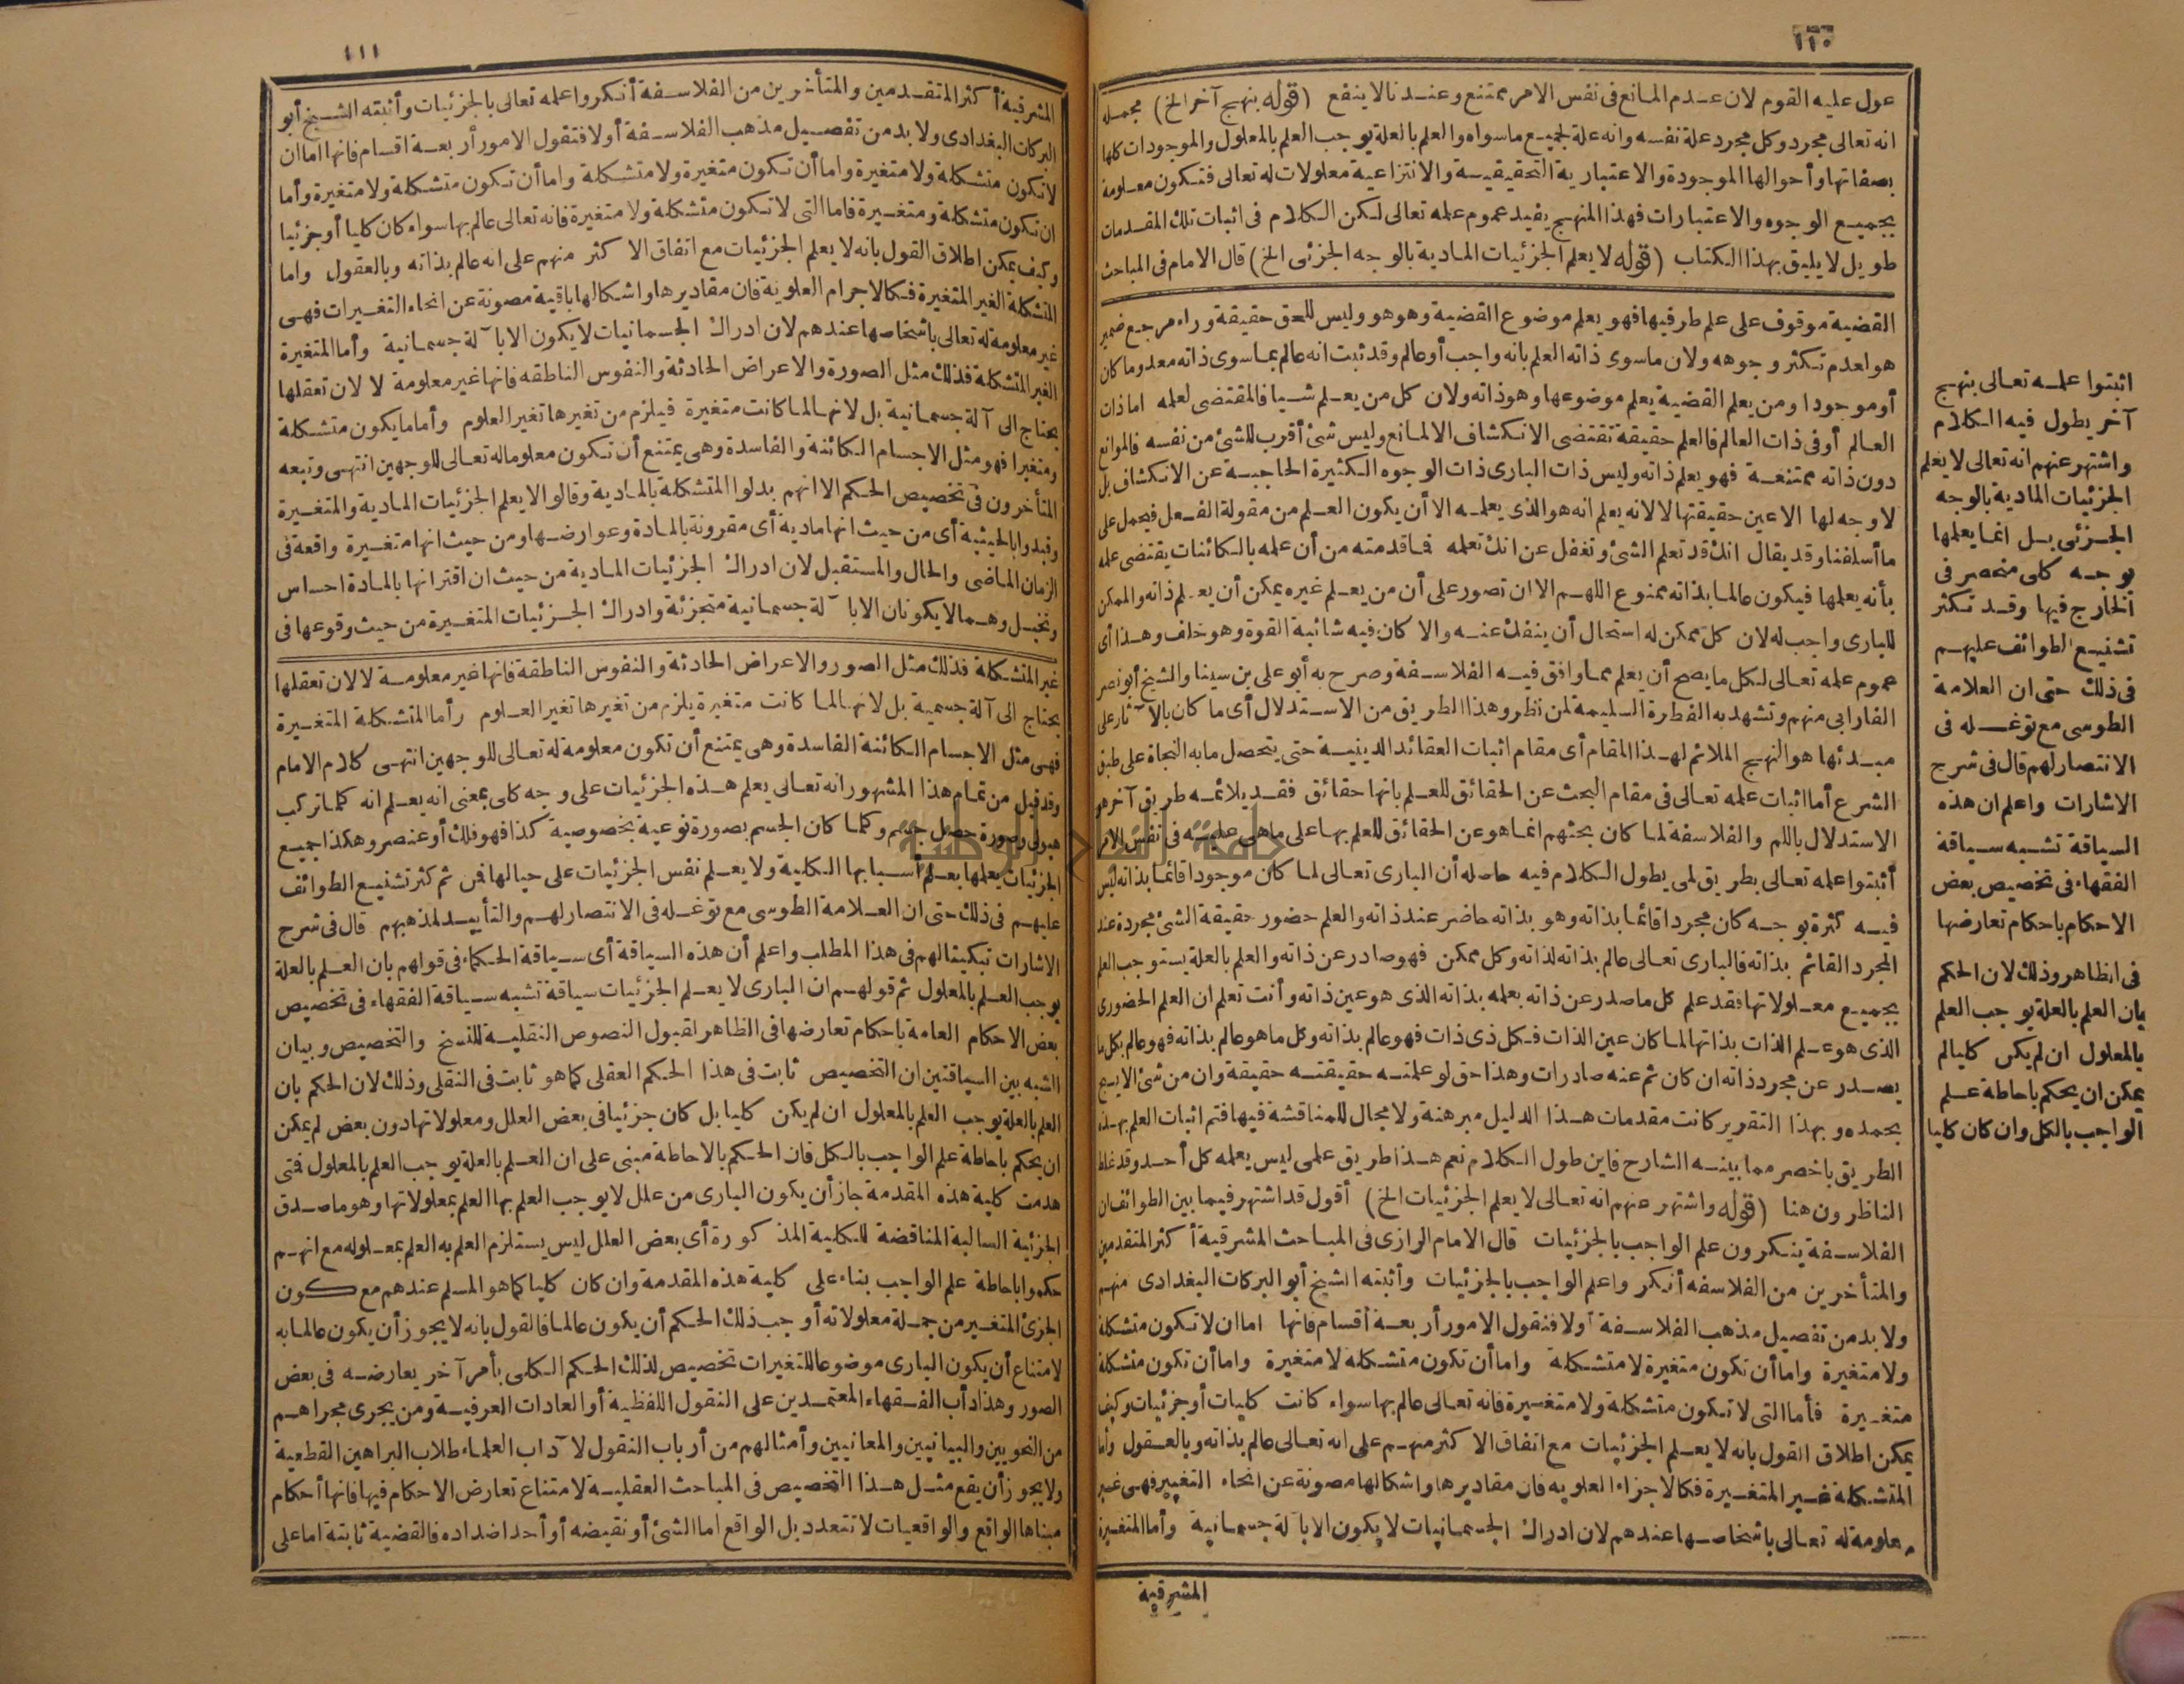 ١١٠
عول عليه القوم لان عدم المانع فى نفس الامر ممتنع وعندنا لا ينفع (قوله بنهج آخر الخ) مجمله
انه تعالى مجرد وكل مجرد علة نفسه وانه علة لجميع ما سواه والعلم بالعلة يوجب العلم بالمعلول والموجودات كلها
بصفاتها وأحوالها الموجودة والاعتبارية الحقيقية والانتزاعية معلولات له تعالى فتكون معلومة
بجميع الوجوه والاعتبارات فهذا المنهج يفيد عموم علمه تعالى لكن الكلام فى اثبات تلك المقدمات
طويل لا يليق بهذا الكتاب (قوله لا يعلم الجزئيات المادية بالوجه الجزئى الخ) قال الامام فى المباحث
القضية موقوف على علم طرفيها فهو يعلم موضوع القضية وهو هو وليس للحق حقيقة وراء مرجع ضمير
هو لعدم تكثر وجوهه ولان ما سوى ذاته العلم بانه واجب أو عالم وقد ثبت انه عالم بما سوى ذاته معدوما كان
أو موجودا ومن يعلم القضية يعلم موضوعها وهو ذاته ولان كل من يعلم شيا فالمقتضى لعلمه اما ذات
العالم أو فى ذات العالم فالعلم حقيقة تقتضى الانكشاف الا لمانع وليس شئ أقرب للشئ من نفسه فالموانع
دون ذاته ممتنعة فهو يعلم ذاته وليس ذات البارى ذات الوجوه الكثيرة الحاجبة عن الانكشاف بل
لا وجه لها الا عين حقيقتها لا لانه يعلم انه هو الذى يعلمه الا أن يكون العلم من مقولة الفعل فيحمل على
ما أسلفنا وقد يقال انك قد تعلم الشئ وتغفل عن انك تعلمه فما قدمته من أن علمه بالكائنات يقتضى علمه
بأنه يعلمها فيكون عالما بذاته ممنوع اللهم الا ان تصور على أن من يعلم غيره يمكن أن يعلم ذاته والممكن
للبارى واجب له لان كل ممكن له استحال أن ينفك عنه والا كان فيه شائبة القوة وهو خلف وهذا أى
عموم علمه تعالى لكل ما يصح أن يعلم مما وافق فيه الفلاسفة وصرح به أبو على بن سينا والشيخ أبو نصر
الفارابى منهم وتشهد به الفطرة السليمة لمن نظر وهذا الطريق من الاستدلال أى ما كان بالآثار على
مبدئها هو النهج الملائم لهذا المقام أى مقام اثبات العقائد الدينية حتى يتحصل ما به النجاة على طبق
الشرع أما اثبات علمه تعالى فى مقام البحث عن الحقائق للعلم بانها حقائق فقد يلائمه طريق آخر هو
الاستدلال باللم والفلاسفة لما كان بحثهم انما هو عن الحقائق للعلم بها على ما هى عليه فى نفس الامر
أثبتوا علمه تعالى بطريق لمى يطول الكلام فيه حاصله أن البارى تعالى لما كان موجودا قائما بذاته ليس
فيه كثرة بوجه كان مجردا قائما بذاته وهو بذاته حاضر عند ذاته والعلم حضور حقيقة الشئ مجردة عند
المجرد القائم بذاته فالبارى تعالى عالم بذاته لذاته وكل ممكن فهو صادر عن ذاته والعلم بالعلة يستوجب العلم
بجميع معلولاتها فقد علم كل ما صدر عن ذاته بعلمه بذاته الذى هو عين ذاته وأنت تعلم ان العلم الحضورى
الذى هو علم الذات بذاتها لما كان عين الذات فكل ذى ذات فهو عالم بذاته وكل ما هو عالم بذاته فهو عالم بكل ما
يصدر عن مجرد ذاته ان كان ثم عنه صادرات وهذا حق لو علمته حقيقته حقيقة وان من شئ الا يسبح
بحمده وبهذا التقرير كانت مقدمات هذا الدليل مبرهنة ولا مجال للمناقشة فيها فتم اثبات العلم بهذا
الطريق باخصر مما بينه الشارح فاين طول الكلام نعم هذا طريق علمى ليس يعلمه كل أحد وقد غلط
الناظرون هنا (قوله واشتهر عنهم انه تعالى لا يعلم الجزئيات الخ) أقول قد اشتهر فيما بين الطوائف ان
الفلاسفة ينكرون علم الواجب بالجزئيات قال الامام الرازى فى المباحث المشرقية أكثر المتقدمين
والمتأخرين من الفلاسفه أنكروا علم الواجب بالجزئيات وأثبته الشيخ أبو البركات البغدادى منهم
ولا بد من تفصيل مذهب الفلاسفة أولا فنقول الامور أربعة أقسام فانها اما ان لا تكون متشكلة
ولا متغيرة واما أن تكون متغيرة لا متشكلة واما أن تكون متشكلة لا متغيرة واما أن تكون متشكلة
متغيرة فأما التى لا تكون متشكلة ولا متغيرة فانه تعالى عالم بها سواء كانت كليات أو جزئيات وكيف
يمكن اطلاق القول بانه لا يعلم الجزئيات مع اتفاق الاكثر منهم على انه تعالى عالم بذاته وبالعقول وأما
المتشكلة غير المتغيرة فكالاجزاء العلويه فان مقاديرها واشكالها مصونة عن انحاء التغيير فهى غير
معلومة له تعالى باشخاصها عندهم لان ادراك الجسمانيات لا يكون الا بآلة جسمانية وأما المتغيرة
المشرقية
اثبتوا علمه تعالى بنهج
آخر يطول فيه الكلام
واشتهر عنهم انه تعالى لا يعلم
الجزئيات المادية بالوجه
الجزئى بل انما يعلمها
بوجه كلى منحصر فى
الخارج فيها وقد تكثر
تشنيع الطوائف عليهم
فى ذلك حتى ان العلامة
الطوسى مع توغله فى
الانتصار لهم قال فى شرح
الاشارات واعلم ان هذه
السياقة تشبه سياقة
الفقهاء فى تخصيص بعض
الاحكام باحكام تعارضها
فى الظاهر وذلك لان الحكم
بان العلم بالعلة يوجب العلم
بالمعلول ان لم يكن كليا لم
يمكن ان يحكم باحاطة علم
الواجب بالكل وان كان كليا
١١١
المشرقية أكثر المتقدمين والمتأخرين من الفلاسفة أنكروا علمه تعالى بالجزئيات وأثبته الشيخ أبو
البركات البغدادى ولا بد من تفصيل مذهب الفلاسفة أولا فتقول الامور أربعة اقسام فانها اما ان
لا تكون متشكلة ولا متغيرة واما أن تكون متغيرة ولا متشكلة واما أن تكون متشكلة ولا متغيرة وأما
ان تكون متشكلة ومتغيرة فاما التى لا تكون متشكلة ولا متغيرة فانه تعالى عالم بها سواء كان كليا أو جزئيا
وكيف يمكن اطلاق القول بانه لا يعلم الجزئيات مع اتفاق الاكثر منهم على انه عالم بذاته وبالعقول واما
المتشكلة الغير المتغيرة فكالاجرام العلوية فان مقاديرها واشكالها باقية مصونة عن انحاء التغيرات فهى
غير معلومه له تعالى باشخاصها عندهم لان ادراك الجسمانيات لا يكون الا بآلة جسمانية وأما المتغيرة
الغير المتشكلة فذلك مثل الصورة والاعراض الحادثة والنفوس الناطقه فانها غير معلومة لا لان تعقلها
يحتاج الى آلة جسمانية بل لانها لما كانت متغيرة فيلزم من تغيرها تغير العلوم وأما ما يكون متشكلة
ومتغيرا فهو مثل الاجسام الكائنة والفاسدة وهى يمتنع أن تكون معلوماله تعالى للوجهين انتهى وتبعه
المتأخرون فى تخصيص الحكم الا انهم بدلوا المتشكلة بالمادية وقالوا لا يعلم الجزئيات المادية والمتغيرة
وقيدوا بالحيثية أى من حيث انها مادية أى مقرونة بالمادة وعوارضها ومن حيث انها متغيرة واقعة فى
الزمان الماضى والحال والمستقبل لان ادراك الجزئيات المادية من حيث ان اقترانها بالمادة احساس
وتخيل وهما لا يكونان الا بآلة جسمانية متجزئة وادراك الجزئيات المتغيرة من حيث وقوعها فى
غير المتشكلة فذلك مثل الصور والاعراض الحادثة والنفوس الناطقة فانها غير معلومة لا لان تعقلها
يحتاج الى آلة جسمية بل لانها لما كانت متغيرة يلزم من تغيرها تغير العلوم وأما المتشكلة المتغيرة
فهى مثل الاجسام الكائنة الفاسدة وهى يمتنع أن تكون معلومة له تعالى للوجهين انتهى كلام الامام
وقد قيل من تمام هذا المشهور انه تعالى يعلم هذه الجزئيات على وجه كلى بمعنى انه يعلم انه كلما تركب
هيولى وصورة حصل جسم وكلما كان الجسم بصورة نوعية بخصوصية كذا فهو فلك أو عنصر وهكذا جميع
الجزئيات يعلمها بعلم أسبابها الكلية ولا يعلم نفس الجزئيات على حيالها فمن ثم كثر تشنيع الطوائف
عليهم فى ذلك حتى ان العلامة الطوسى مع توغله فى الانتصار لهم والتأييد لمذهبهم قال فى شرح
الاشارات تبكيتا لهم فى هذا المطلب واعلم أن هذه السياقة أى سياقة الحكماء فى قولهم بان العلم بالعلة
يوجب العلم بالمعلول ثم قولهم ان البارى لا يعلم الجزئيات سياقة تشبه سياقة الفقهاء فى تخصيص
بعض الاحكام العامة باحكام تعارضها فى الظاهر لقبول النصوص النقلية للنسخ والتخصيص وبيان
الشبه بين السياقتين ان التخصيص ثابت فى هذا الحكم العقلى كما هو ثابت فى النقلى وذلك لان الحكم بان
العلم بالعلة يوجب العلم بالمعلول ان لم يكن كليا بل كان جزئيا فى بعض العلل ومعلولاتها دون بعض لم يمكن
ان يحكم باحاطة علم الواجب بالكل فان الحكم بالاحاطة مبنى على ان العلم بالعلة يوجب العلم بالمعلول فتى
هدمت كلية هذه المقدمة جاز أن يكون البارى من علل لا يوجب العلم بها العلم بمعلولاتها وهو ما صدق
الجزئية السالبة المناقضة للكلية المذكورة أى بعض العلل ليس يستلزم العلم به العلم بمعلوله مع انهم
حكموا باحاطة علم الواجب بناء على كلية هذه المقدمة وان كان كليا كما هو المسلم عندهم مع كون
الجزئ المتغير من جملة معلولاته أوجب ذلك الحكم أن يكون عالما فالقول بانه لا يجوز أن يكون عالما به
لامتناع أن يكون البارى موضوعا للتغيرات تخصيص لذلك الحكم الكلى بأمر آخر يعارضه فى بعض
الصور وهذا دأب الفقهاء المعتمدين على النقول اللفظية أو العادات العرفية ومن يجرى مجراهم
من النحويين والبيانيين والمعانيين وأمثالهم من أرباب النقول لا آداب العلماء طلاب البراهين القطعية
ولا يجوز أن يقع مثل هذا التخصيص فى المباحث العقلية لامتناع تعارض الاحكام فيها فانها أحكام
مبناها الواقع والواقعيات لا تتعدد بل الواقع اما الشئ أو نقيضه أو أحد اضداده فالقضية ثابتة اما على